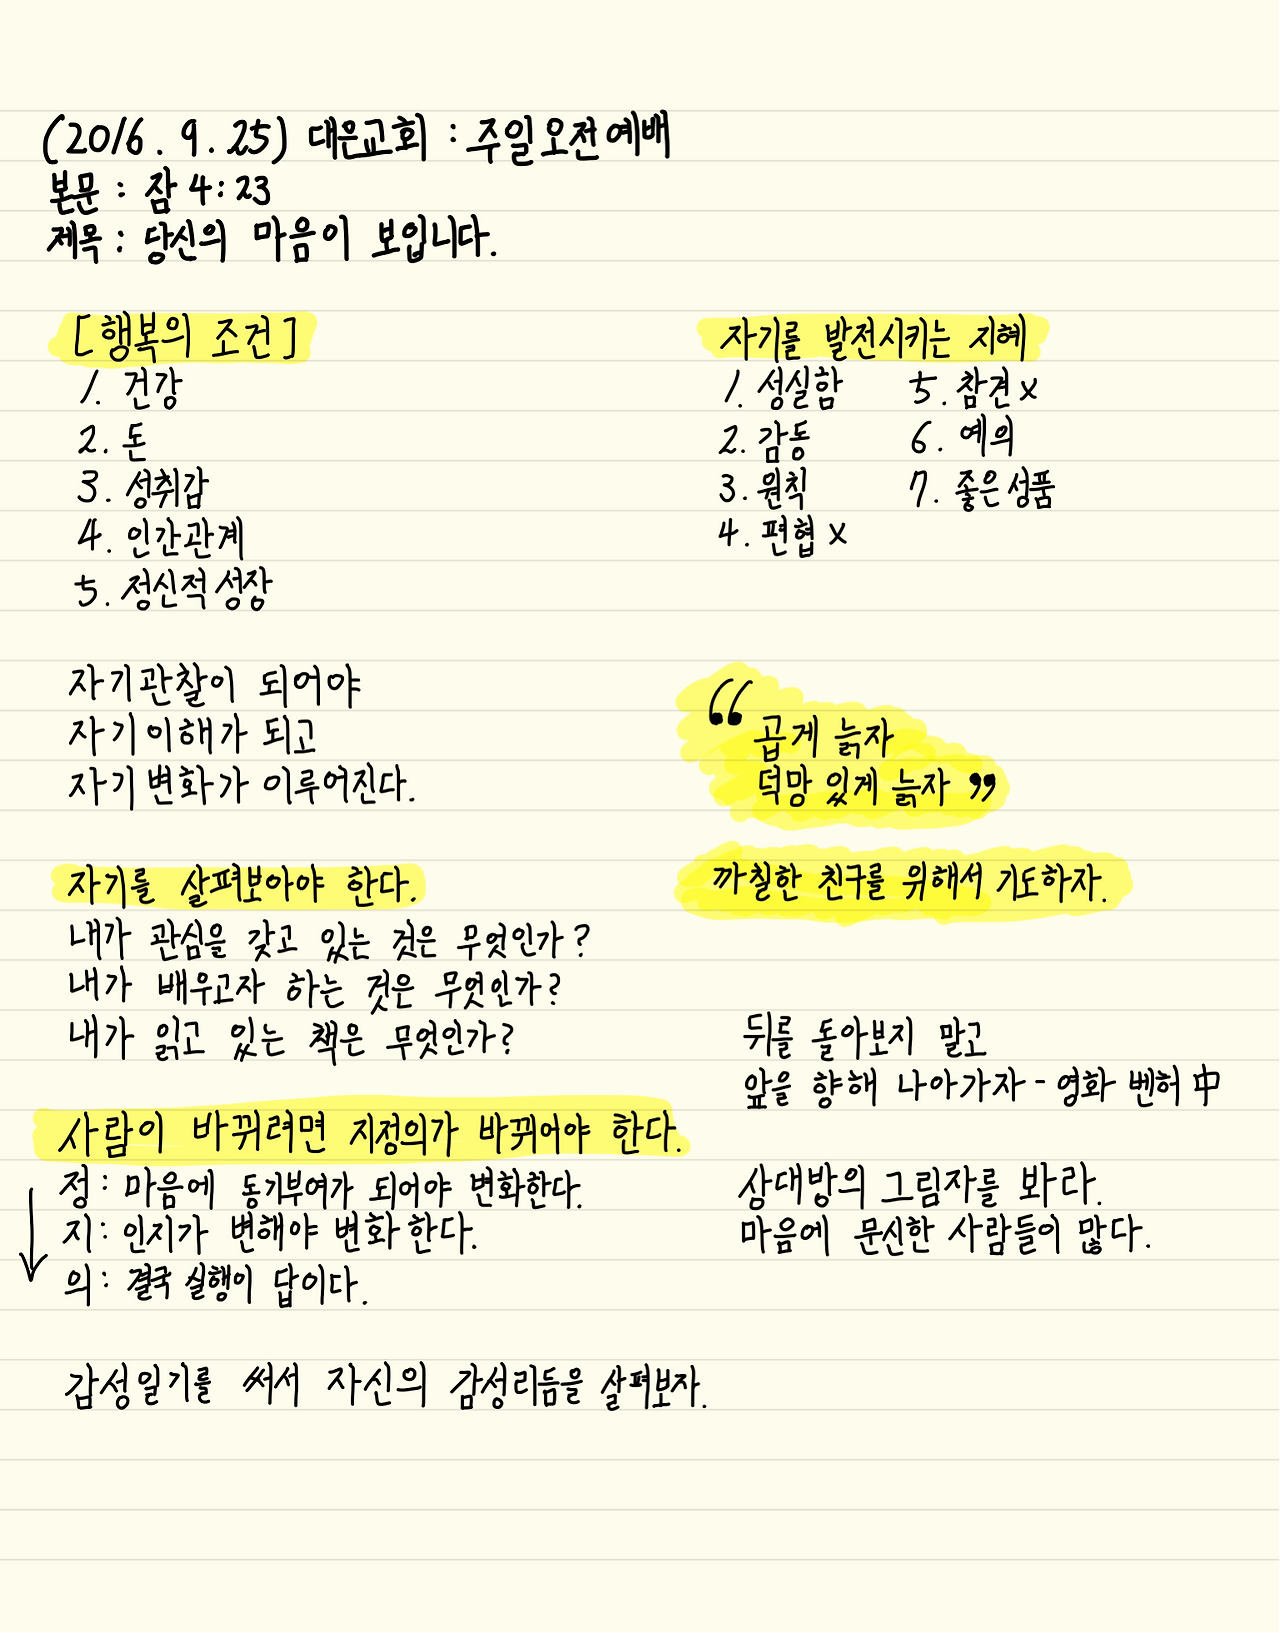 (2016. 9. 25) 대은교회 : 주일오전예배
본문 : 잠 4:23
제목 : 당신의 마음이 보입니다.
[행복의 조건]
1. 건강
2. 돈
3. 성취감
4. 인간관계
5. 정신적 성장
자기관찰이 되어야
자기이해가 되고
자기변화가 이루어진다.
자기를 살펴보아야 한다.
내가 관심을 갖고 있는 것은 무엇인가?
내가 배우고자 하는 것은 무엇인가?
내가 읽고 있는 책은 무엇인가?
사람이 바뀌려면 지정의가 바뀌어야 한다.
정 : 마음에 동기부여가 되어야 변화한다.
지 : 인지가 변해야 변화한다.
의 : 결국 실행이 답이다.
감성일기를 써서 자신의 감성리듬을 살펴보자.
자기를 발전시키는 지혜
1. 성실함
2. 감동
3. 원칙
4. 편협 x
5. 참견 x
6. 예의
7. 좋은성품
“곱게 늙자
덕망 있게 늙자”
까칠한 친구를 위해서 기도하자.
뒤를 돌아보지 말고
앞을 향해 나아가자 - 영화 벤허 中
상대방의 그림자를 봐라.
마음에 문신한 사람들이 많다.